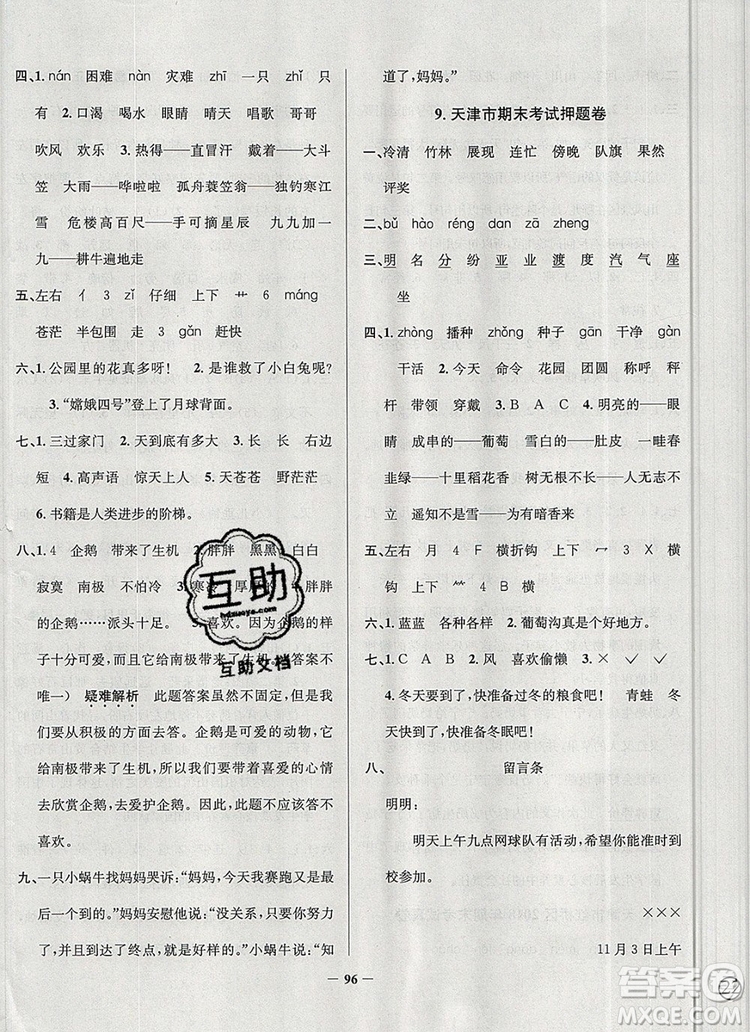 四、1. nán 困难 nàn 灾难 zhī 一只 zhǐ 只
有 2. 口渴 喝水 眼睛 晴天 唱歌 哥哥
吹风 欢乐 3. 热得——直冒汗 戴着——大斗
笠 大雨——哗啦啦 孤舟蓑笠翁——独钓寒江
雪 危楼高百尺——手可摘星辰 九九加一
九——耕牛遍地走
五、左右 亻 3 zǐ 仔细 上下 艹 6 máng
苍茫 半包围 走 3 gǎn 赶快
六、1. 公园里的花真多呀! 2. 是谁救了小白兔呢?
3. “嫦娥四号”登上了月球背面。
七、1. 三过家门 2. 天到底有多大 3. 长 右边
短 4. 高声语 惊天上人 5. 天苍苍 野茫茫
6. 书籍是人类进步的阶梯。
八、1. 4 企鹅 带来了生机 2. 胖胖 黑黑 白白
寂寞 南极 不怕冷 3. 寒冷 厚厚的 4. 胖胖
的企鹅……派头十足。 5. 喜欢。因为企鹅的样
子十分可爱,它给南极带来了生机。(答案不
唯一) 疑难解析 此题答案虽然不固定,但是我
们要从积极的方面去答。企鹅是可爱的动物,它
给南极带来了生机,所以我们要带着喜爱的心情
去欣赏企鹅、去爱护企鹅。因此,此题不应该答不
喜欢。
九、一只小蜗牛找妈妈哭诉:“妈妈,今天我赛跑又是最
后一个到的。”妈妈安慰他说:“没关系,只要你努力
了,并且跑到了终点,就是好样的。”小蜗牛说:“知
道了,妈妈。”
9. 天津市期末考试押题卷
一、冷清 竹林 展现 连忙 傍晚 队旗 果然
评奖
二、bǔ hào réng dan zā zheng
三、明 名 分 纷 亚 业 渡 度 汽 气 座
坐
四、1. zhòng 播种 zhǒng 种子 gān 干净 gàn
干活 2. 今天 命令 花园 团圆 称呼 秤
杆 带领 穿戴 3. B A C 4. 明亮的——眼
睛 成串的——葡萄 雪白的——肚皮 一畦春
韭绿——十里稻花香 树无根不长——人无志不
立 遥知不是雪——为有暗香来
五、左右 月 4 F 横折钩 上下 冖 3 X 横
钩 上下 ⺮ 4 B 横
六、1. 蓝蓝 各种各样 2. 葡萄沟真是个好地方。
七、1. C A B 2. 风 喜欢偷懒 3. × ✓ ✓
4. 冬天要到了,快准备过冬的粮食吧! 青蛙 冬
天快到了,快准备冬眠吧!
八、 留言条
明明:
明天上午九点网球队有活动,希望你能准时到
校参加。
×××
11月3日上午
互助
互助文档
— 96 —
22
答案圈
MXQE.COM